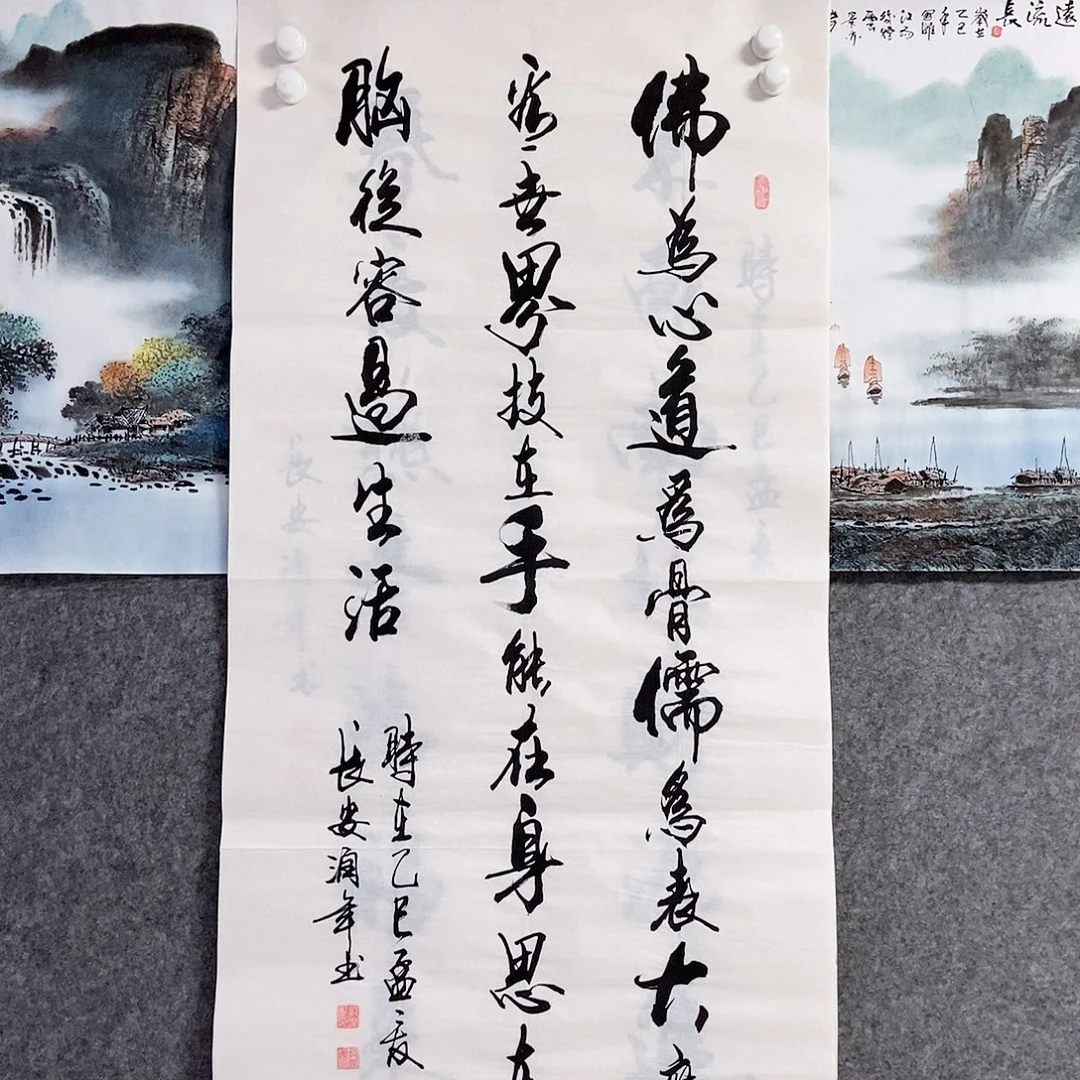 遠流長
歲在
乙巳
年
佛為心道為骨儒為表大度
看世界技在手能在身思在
腦從容過生活
時在乙巳孟夏
長安潤年書